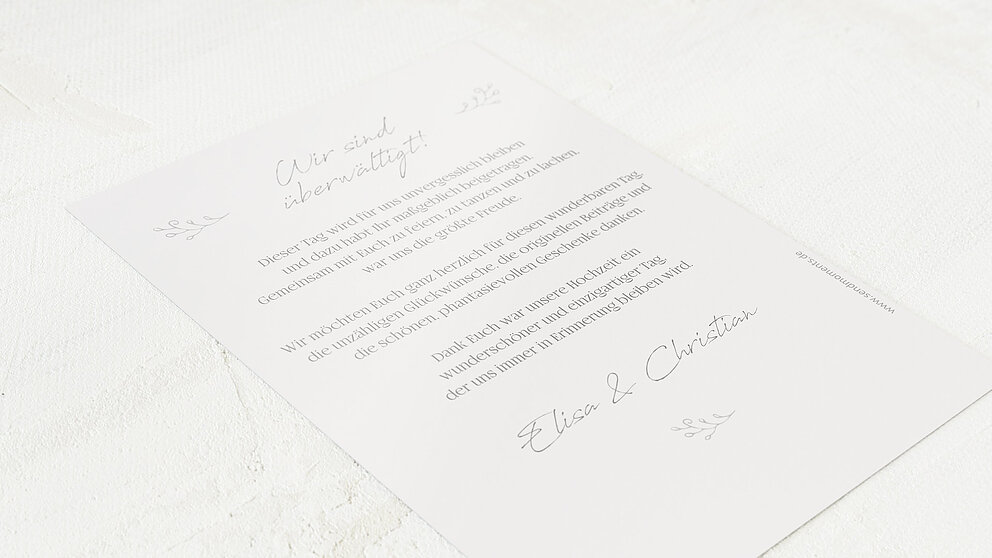 Wir sind
überwältigt!
Dieser Tag wird für uns unvergesslich bleiben
und dazu habt Ihr maßgeblich beigetragen.
Gemeinsam mit Euch zu feiern, zu tanzen und zu lachen,
war uns die größte Freude.
Wir möchten Euch ganz herzlich für diesen wunderbaren Tag,
die unzähligen Glückwünsche, die originellen Beiträge und
die schönen, phantasievollen Geschenke danken.
Dank Euch war unsere Hochzeit ein
wunderschöner und einzigartiger Tag,
der uns immer in Erinnerung bleiben wird.
Elisa & Christian
www.sendmoments.de